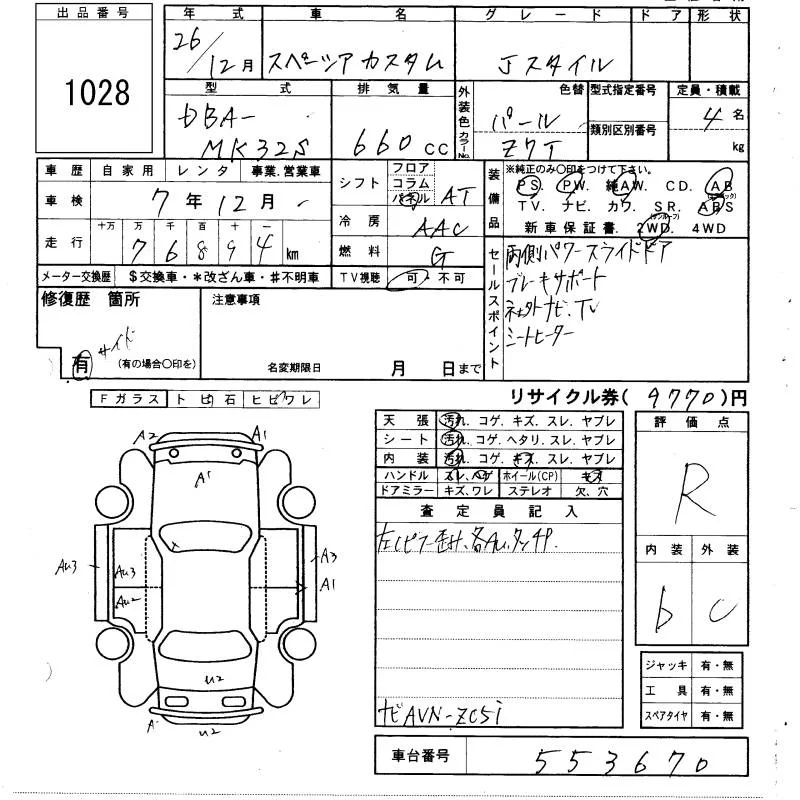 出品番号
1028
年 式 車 名 グレード ドア 形状
26/12月 スペーシア カスタム Jスタイル
型 式 排気量 外装色 カラーNo. 色替 型式指定番号 定員・積載
DBA-MK32S 660 CC パール 類別区別番号 4名
ZWT kg
車歴 自家用 レンタ 事業.営業車
車検 7年12月
走行 十万 万 千 百 十
7 6 8 9 4 km
メーター交換歴 $交換車・*改ざん車・#不明車
シフト フロア コラム パネル AT
冷房 AAC
燃料 G
TV視聴 可・不可
装備品 ※純正のみ〇印をつけて下さい。
PS. PW. 純AW. CD. AB
TV. ナビ. カワ. SR. ABS
新車保証書. 2WD. 4WD
セールスポイント
両側パワースライドドア
ブレーキサポート
社外ナビ.TV
シートヒーター
修復歴 箇所 注意事項
サイド
有 (有の場合〇印を) 名変期限日 月 日まで
リサイクル券( 9770 )円
Fガラス トビ石 ヒビワレ
天張 汚れ. コゲ. キズ. スレ. ヤブレ
シート 汚れ. コゲ. ヘタリ. スレ. ヤブレ
内装 汚れ. コゲ. キズ. スレ. ヤブレ
ハンドル スレ. ハゲ ホイール(CP) キズ
ドアミラー キズ. ワレ ステレオ 欠. 穴
評価点
R
内装 外装
b c
査定員記入
各AU.
ナビAVN-ZC5i
A2 A1
A1
AU3 AU3 A3
AU2 A1
U2
A-
U2
ジャッキ 有・無
工具 有・無
スペアタイヤ 有・無
車台番号 553670